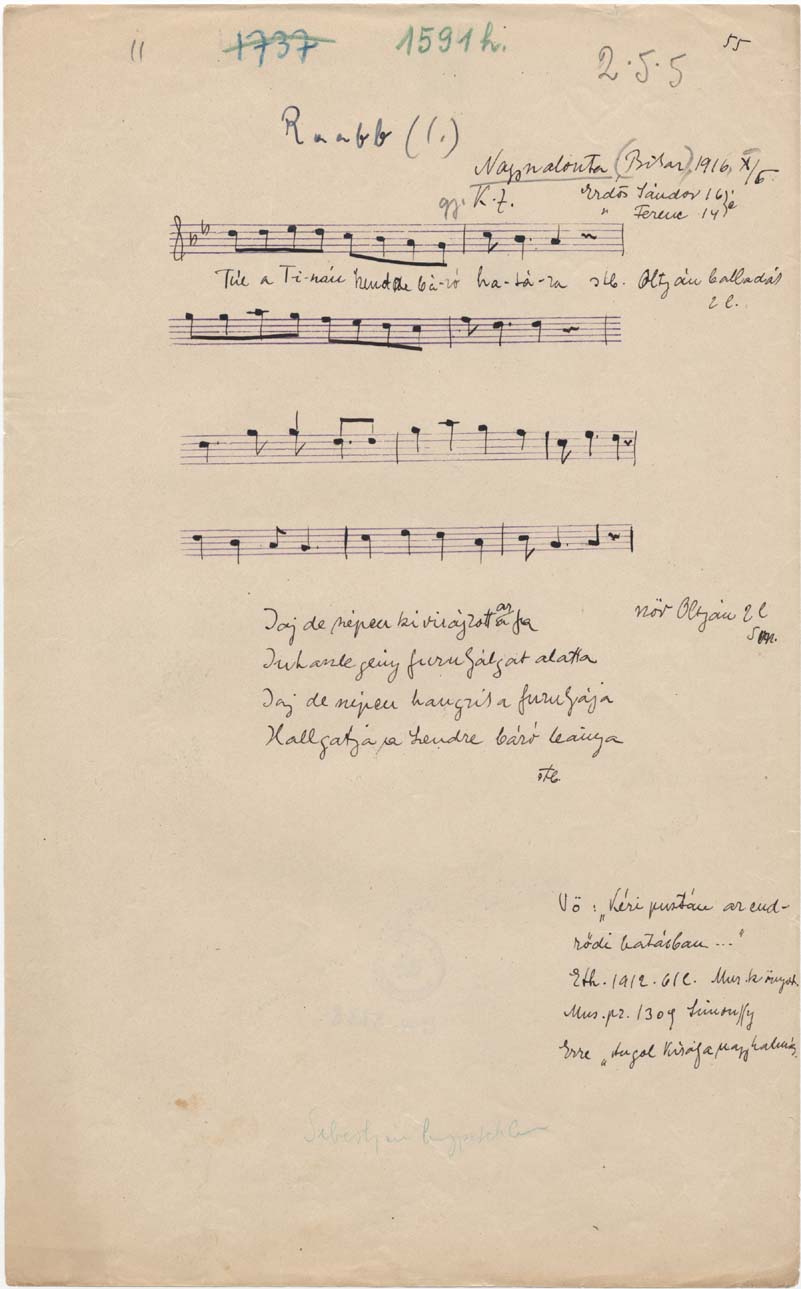 11 1737 1591 h. 55
2.5.5
Raabb (I.)
Nagyszalonta (Bihar) 1916, X/5
gy. K. Z. Erdős Sándor 16 é
" Ferenc 14
Túl a Ti-nán Szendre bá-ró ha-tá-ra stb. Oltyán balladás
2 l.
Jaj de szépen kivirágzott az a fa
Juhaszlegény furulyálgat alatta
Jaj de szépen hangzis a furulyája
Hallgatja a Szendre báró leánya
stb.
szöv Oltyán 2 l
Vö: „Kéri pusztán az end-
rődi határban ..."
Eth. 1912. 61 l. Mus. könyvt.
Mus. pr. 1309 Simonffy
Erre „Angol Királyfa